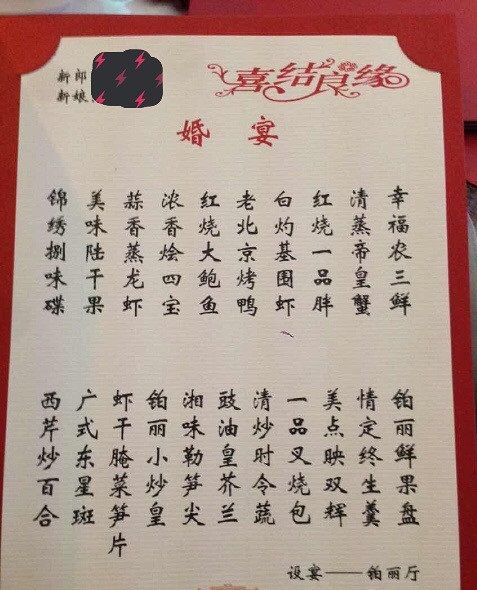 新郎
新娘
喜结良缘
婚宴
锦绣捌味碟
美味陆干果
蒜香蒸龙虾
浓香烩四宝
红烧大鲍鱼
老北京烤鸭
白灼基围虾
红烧一品胖
清蒸帝皇蟹
幸福农三鲜
西芹炒百合
广式东星斑
虾干腌菜笋片
铂丽小炒皇
湘味勒笋尖
豉油皇芥兰
清炒时令蔬
一品叉烧包
美点映双辉
情定终生羹
铂丽鲜果盘
设宴——铂丽厅